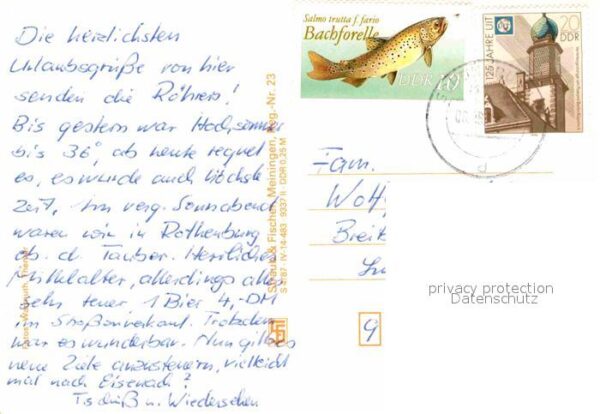 Die herzlichsten
Urlaubsgrüße von hier
senden die Röhrers!
Bis gestern war Hochsommer
bis 36°, ab heute regnet
es, es wurde auch höchste
Zeit. Am verg. Sonnabend
waren wir in Rothenburg
ob. d. Tauber. Herrliches
Mittelalter, allerdings alles
sehr teuer 1 Bier 4,-DM
im Straßenverkauf. Trotzdem
war es wunderbar. Nun gilt es
neue Ziele anzusteuern, vielleicht
mal nach Eisenach?
Tschüß u. Wiedersehen
Straub & Fischer, Meiningen, Reg.-Nr. 23
IV-14-483 9337 II DDR 0,25 M
Salmo trutta f. fario
Bachforelle
DDR 10
125 JAHRE UIT
20
DDR
Fam.
Wolf
Breit
privacy protection
Datenschutz